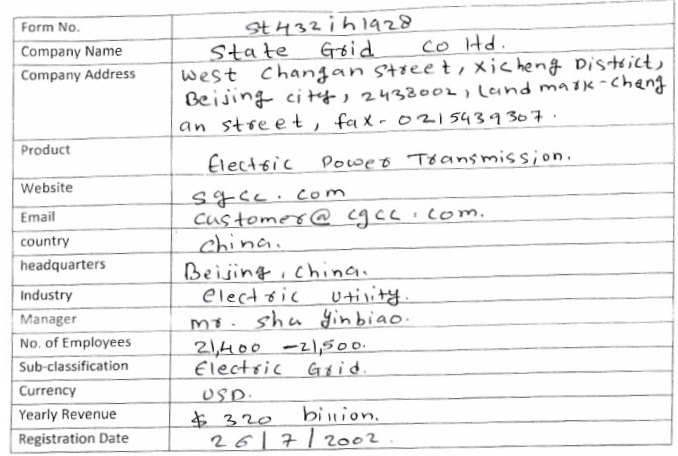 Form No. St432ih1928
Company Name State Grid co ltd.
Company Address West Changan Street, Xicheng District,
Beijing city, 2438002, Land mark-Chang
an street, fax-0215439307.
Product Electric Power Transmission.
Website sgcc.com
Email customer@cgcc.com.
country China.
headquarters Beijing, China.
Industry Electric Utility.
Manager mr. shu Yinbiao.
No. of Employees 21,400 -21,500.
Sub-classification Electric Grid.
Currency USD.
Yearly Revenue $ 320 billion.
Registration Date 26/7/2002.